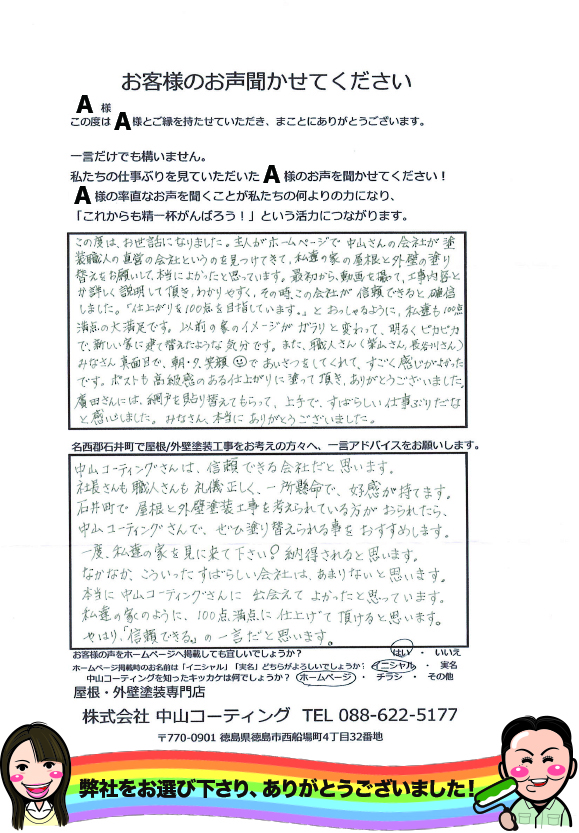 お客様のお声聞かせてください
A 様
この度は A 様とご縁を持たせていただき、まことにありがとうございます。
一言だけでも構いません。
私たちの仕事ぶりを見ていただいた A 様のお声を聞かせてください！
A 様の率直なお声を聞くことが私たちの何よりの力になり、
「これからも精一杯がんばろう！」という活力につながります。
この度は、お世話になりました。主人がホームページで 中山さんの会社が 塗
装職人の直営の会社というのを見つけてきて、私達の家の屋根と外壁の塗り
替えをお願いして、本当によかったと思っています。最初から、動画を撮って、工事内容と
か詳しく説明して頂き、わかりやすく、その時、この会社が信頼できると確信
しました。『仕上がりを100点を目指しています。』とおっしゃるように、私達も100点
満点の大満足です。以前の家のイメージがガラリと変わって、明るくピカピカ
で、新しい家に建て替えたような気分です。また、職人さん(柴山さん、長谷川さん)
みなさん真面目で、朝・夕、笑顔 であいさつをしてくれて、すごく感じがよかった
です。ポストも高級感のある仕上がりに塗って頂き、ありがとうございました。
廣田さんには、網戸を貼り替えてもらって、上手で、すばらしい仕事ぶりだな
と感心しました。みなさん、本当にありがとうございました。
名西郡石井町で屋根/外壁塗装工事をお考えの方々へ、一言アドバイスをお願いします。
中山コーティングさんは、信頼できる会社だと思います。
社長さんも職人さんも礼儀正しく、一所懸命で、好感が持てます。
石井町で屋根と外壁塗装工事を考えられている方がおられたら、
中山コーティングさんで、ぜひ塗り替えられる事をおすすめします。
一度、私達の家を見に来て下さい！納得されると思います。
なかなか、こういったすばらしい会社は、あまりないと思います。
本当に中山コーティングさんに出会えてよかったと思っています。
私達の家のように、100点満点に仕上げて頂けると思います。
やはり、『信頼できる』の一言だと思います。
お客様の声をホームページへ掲載しても宜しいでしょうか？ はい ・ いいえ
ホームページ掲載時のお名前は「イニシャル」「実名」どちらがよろしいでしょうか？ イニシャル ・ 実名
中山コーティングを知ったキッカケは何でしょうか？ ホームページ ・ チラシ ・ その他
屋根・外壁塗装専門店
株式会社 中山コーティング TEL 088-622-5177
〒770-0901 徳島県徳島市西船場町4丁目32番地
弊社をお選び下さり、ありがとうございました！